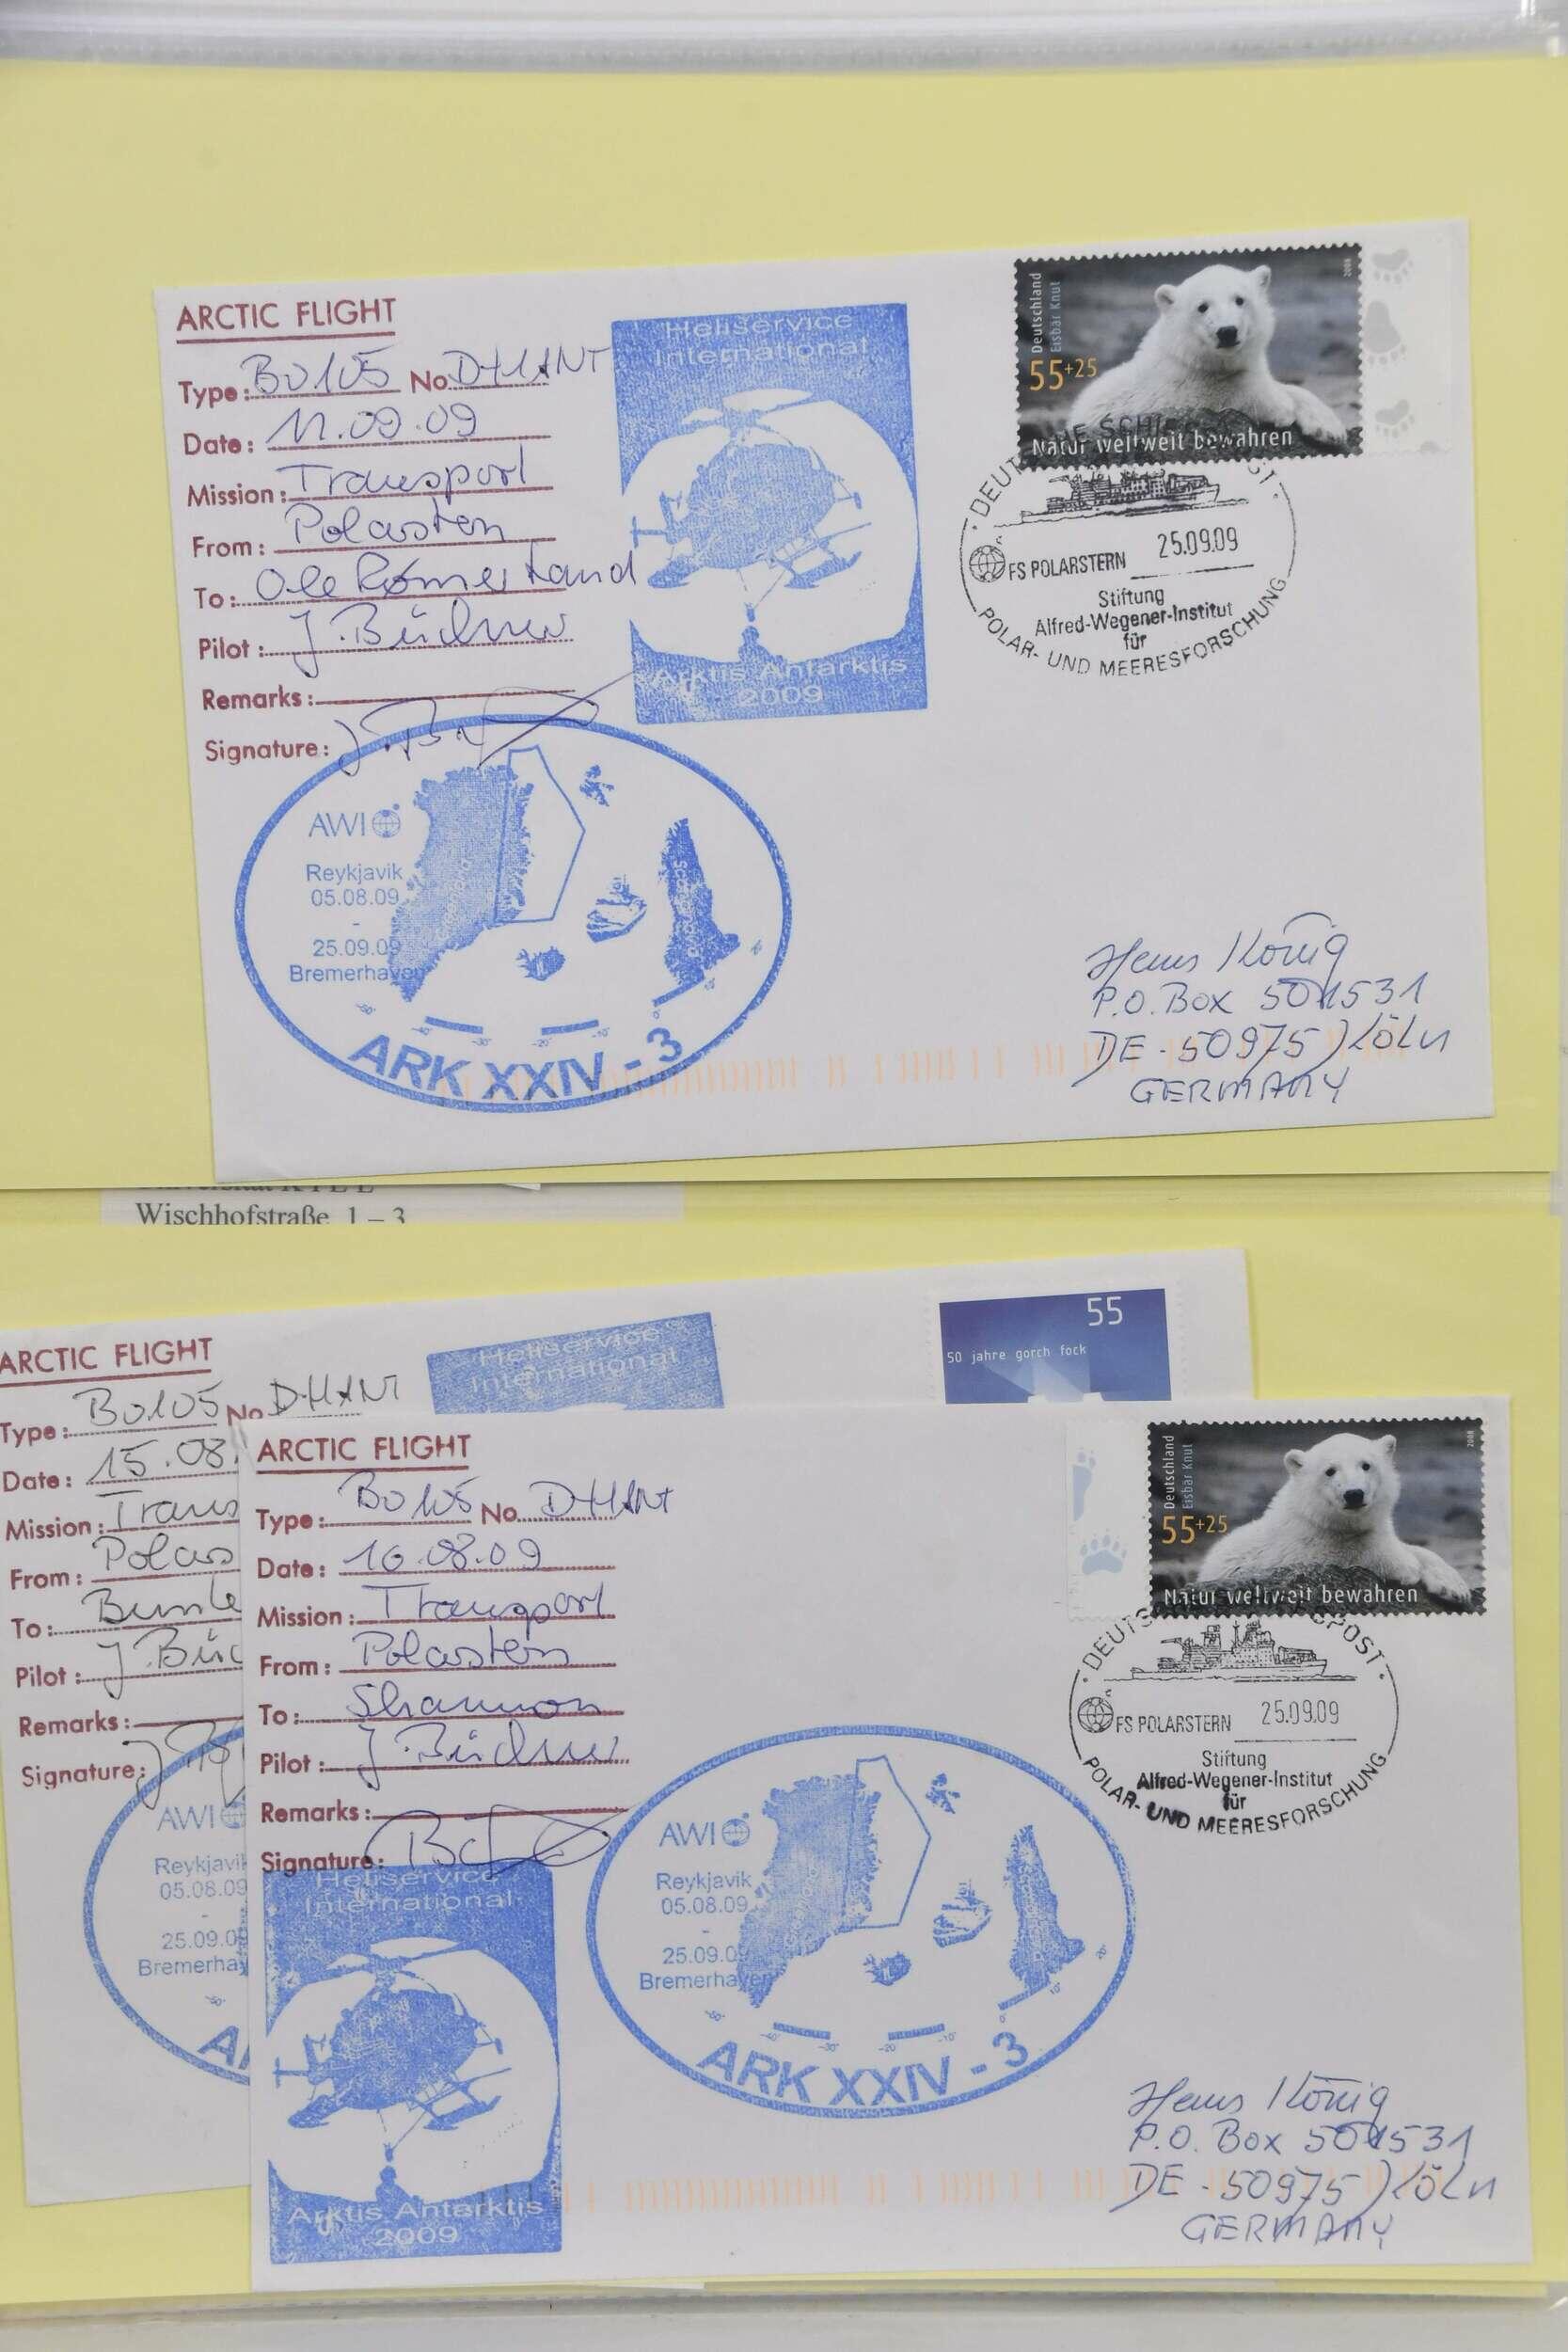 ARCTIC FLIGHT
Type: Bo105 No. D-HANT
Date: 11.09.09
Mission: Transport
From: Polarstern
To: Ole Rømer Land
Pilot: J. Büchner
Remarks:
Signature:
Heliservice
International
Arktis Antarktis
2009
Deutschland
Eisbär Knut
2008
55+25
Natur weltweit bewahren
FS POLARSTERN 25.09.09
Stiftung
Alfred-Wegener-Institut
für
POLAR- UND MEERESFORSCHUNG
AWI
Reykjavik
05.08.09
-
25.09.09
Bremerhaven
ARK XXIV - 3
Hans König
P.O. Box 501531
DE - 50975 Köln
GERMANY
Wischhofstraße 1 – 3
ARCTIC FLIGHT
Type: Bo105 No. D-HANT
Date: 15.08.
Mission: Trans
From: Polars
To: Bunte
Pilot: J. Büc
Remarks:
Signature:
Heliservice
International
55
50 jahre gorch fock
AWI
Reykjavik
05.08.09
-
25.09.09
Bremerhav
A
ARCTIC FLIGHT
Type: Bo105 No. D-HANT
Date: 16.08.09
Mission: Transport
From: Polarstern
To: Shannon
Pilot: J. Büchner
Remarks:
Signature:
Heliservice
International
Arktis Antarktis
2009
Deutschland
Eisbär Knut
2008
55+25
Natur weltweit bewahren
FS POLARSTERN 25.09.09
Stiftung
Alfred-Wegener-Institut
für
POLAR- UND MEERESFORSCHUNG
AWI
Reykjavik
05.08.09
-
25.09.09
Bremerhaven
ARK XXIV - 3
Hans König
P.O. Box 501531
DE - 50975 Köln
GERMANY